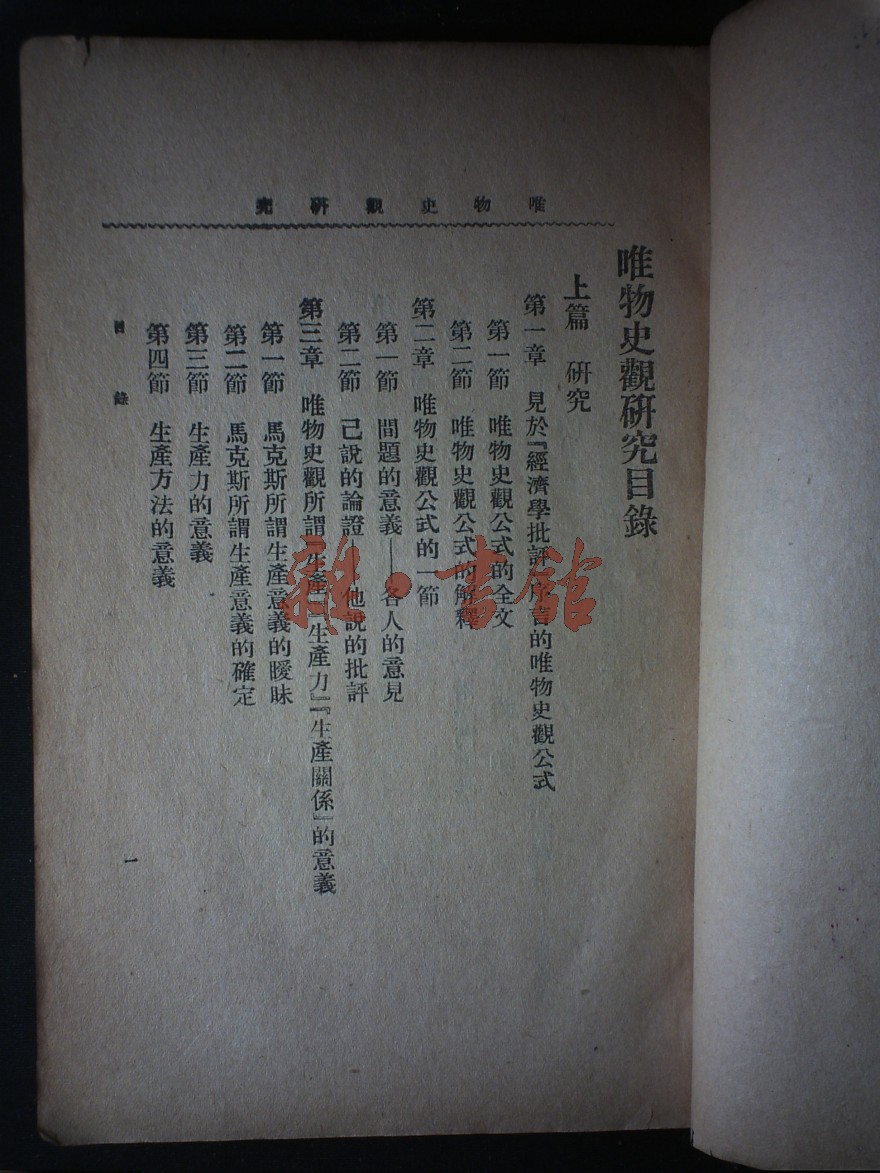 唯物史觀研究
唯物史觀研究目錄
上篇 研究
第一章 見於『經濟學批評』序言的唯物史觀公式
第一節 唯物史觀公式的全文
第二節 唯物史觀公式的解釋
第二章 唯物史觀公式的一節
第一節 問題的意義——各人的意見
第二節 己說的論證——他說的批評
第三章 唯物史觀所謂『生產』『生產力』『生產關係』的意義
第一節 馬克斯所謂生產意義的曖昧
第二節 馬克斯所謂生產意義的確定
第三節 生產力的意義
第四節 生產方法的意義
目錄
一
雜·書館